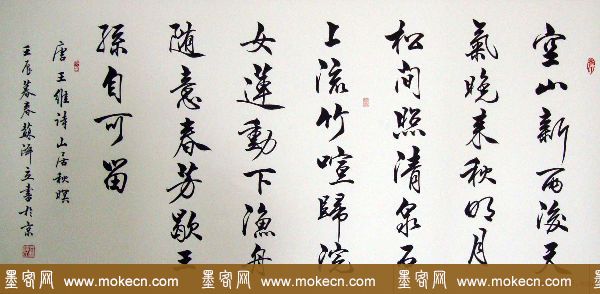 空山新雨後天
氣晚来秋明月
松间照清泉石
上流竹喧歸浣
女蓮動下漁舟
随意春芳歇王
孫自可留
唐王维诗山居秋暝
壬辰暮春蘇澤立書於京
墨客网 www.mokecn.com 墨客网 www.mokecn.com 墨客网 www.mokecn.com